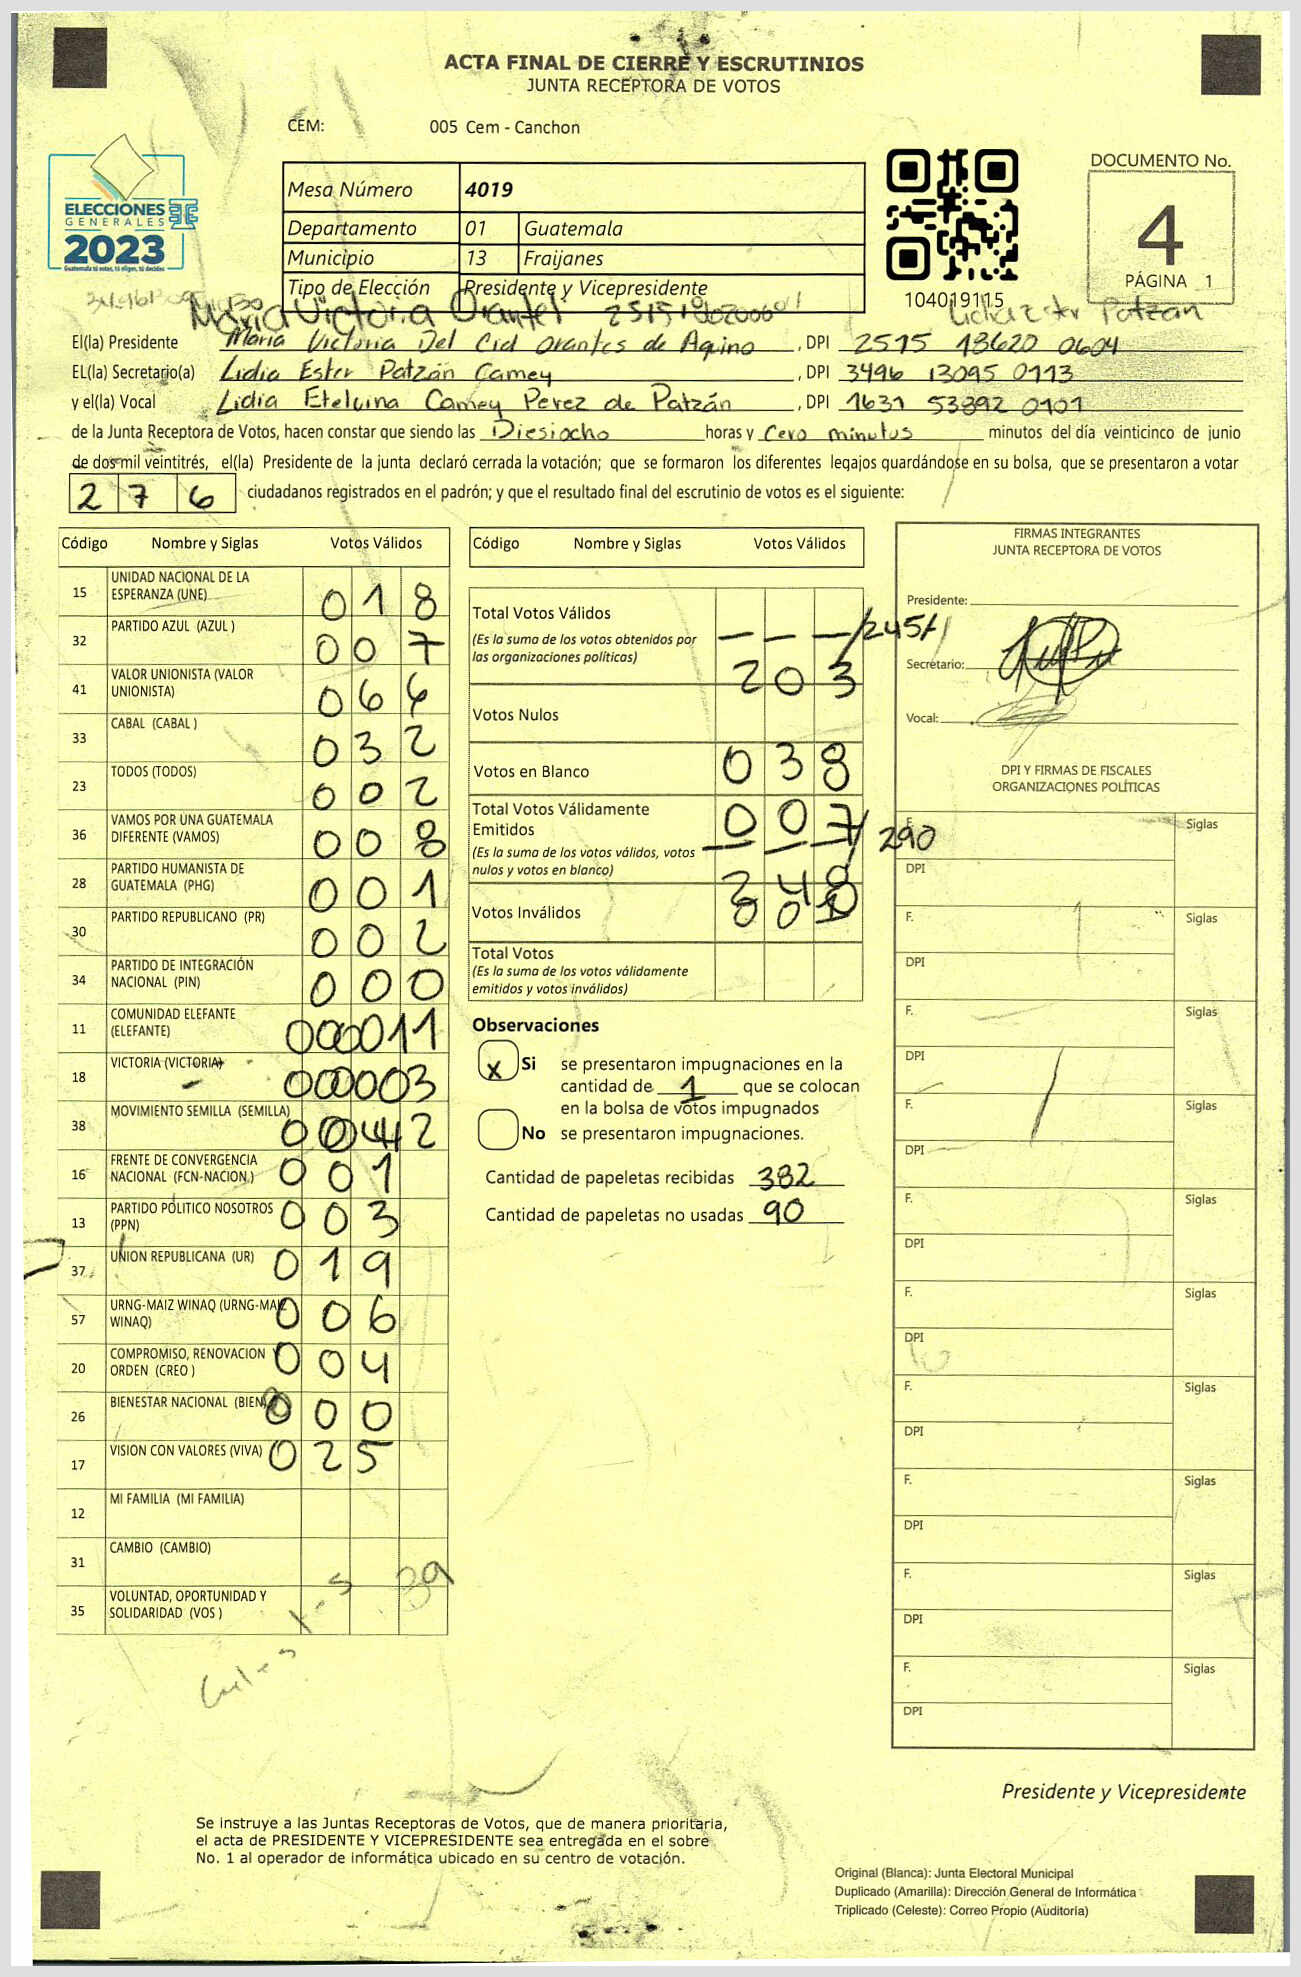 ACTA FINAL DE CIERRE Y ESCRUTINIOS
JUNTA RECEPTORA DE VOTOS
CEM: 005 Cem - Canchon
ELECCIONES
GENERALES
2023
Guatemala tú votas, tú eliges, tú decides
Mesa Número 4019
Departamento 01 Guatemala
Municipio 13 Fraijanes
Tipo de Elección Presidente y Vicepresidente
104019115
DOCUMENTO No.
4
PÁGINA 1
Maria Victoria Patzan
El(la) Presidente Maria Victoria Del Cid Orantes de Aquino, DPI 2515 18620 0604
EL(la) Secretario(a) Lidia Ester Patzán Camey, DPI 3496 13095 0113
y el(la) Vocal Lidia Etelvina Camey Perez de Patzán, DPI 1631 53892 0101
de la Junta Receptora de Votos, hacen constar que siendo las Diesiocho horas y Cero minutus minutos del día veinticinco de junio
de dos mil veintitrés, el(la) Presidente de la junta declaró cerrada la votación; que se formaron los diferentes legajos guardándose en su bolsa, que se presentaron a votar
2 7 6 ciudadanos registrados en el padrón; y que el resultado final del escrutinio de votos es el siguiente:
Código Nombre y Siglas Votos Válidos
15 UNIDAD NACIONAL DE LA ESPERANZA (UNE) 0 1 8
32 PARTIDO AZUL (AZUL ) 0 0 7
41 VALOR UNIONISTA (VALOR UNIONISTA) 0 6 4
33 CABAL (CABAL ) 0 3 2
23 TODOS (TODOS) 0 0 2
36 VAMOS POR UNA GUATEMALA DIFERENTE (VAMOS) 0 0 8
28 PARTIDO HUMANISTA DE GUATEMALA (PHG) 0 0 1
30 PARTIDO REPUBLICANO (PR) 0 0 2
34 PARTIDO DE INTEGRACIÓN NACIONAL (PIN) 0 0 0
11 COMUNIDAD ELEFANTE (ELEFANTE) 000011
18 VICTORIA (VICTORIA) 000003
38 MOVIMIENTO SEMILLA (SEMILLA)
16 FRENTE DE CONVERGENCIA NACIONAL (FCN-NACION ) 0 0 1
13 PARTIDO POLITICO NOSOTROS (PPN) 0 0 3
37 UNION REPUBLICANA (UR) 0 1 9
57 URNG-MAIZ WINAQ (URNG-MAIZ WINAQ) 0 0 6
20 COMPROMISO, RENOVACION Y ORDEN (CREO ) 0 0 4
26 BIENESTAR NACIONAL (BIEN) 0 0 0
17 VISION CON VALORES (VIVA) 0 2 5
12 MI FAMILIA (MI FAMILIA)
31 CAMBIO (CAMBIO)
39
35 VOLUNTAD, OPORTUNIDAD Y SOLIDARIDAD (VOS )
Código Nombre y Siglas Votos Válidos
Total Votos Válidos
(Es la suma de los votos obtenidos por
las organizaciones políticas)
– – – /245/
2 0 3
Votos Nulos
0 3 8
Votos en Blanco
0 0 7
Total Votos Válidamente
Emitidos
(Es la suma de los votos válidos, votos
nulos y votos en blanco)
/ 290
Votos Inválidos
Total Votos
(Es la suma de los votos válidamente
emitidos y votos inválidos)
Observaciones
x Si se presentaron impugnaciones en la
cantidad de 1 que se colocan
en la bolsa de votos impugnados
No se presentaron impugnaciones.
Cantidad de papeletas recibidas 382
Cantidad de papeletas no usadas 90
FIRMAS INTEGRANTES
JUNTA RECEPTORA DE VOTOS
Presidente:
Secretario:
Vocal:
DPI Y FIRMAS DE FISCALES
ORGANIZACIONES POLÍTICAS
F. Siglas
DPI
F. Siglas
DPI
F. Siglas
DPI
F. Siglas
DPI
F. Siglas
DPI
F. Siglas
DPI
F. Siglas
DPI
F. Siglas
DPI
F. Siglas
DPI
F. Siglas
DPI
Presidente y Vicepresidente
Se instruye a las Juntas Receptoras de Votos, que de manera prioritaria,
el acta de PRESIDENTE Y VICEPRESIDENTE sea entregada en el sobre
No. 1 al operador de informática ubicado en su centro de votación.
Original (Blanca): Junta Electoral Municipal
Duplicado (Amarilla): Dirección General de Informática
Triplicado (Celeste): Correo Propio (Auditoría)